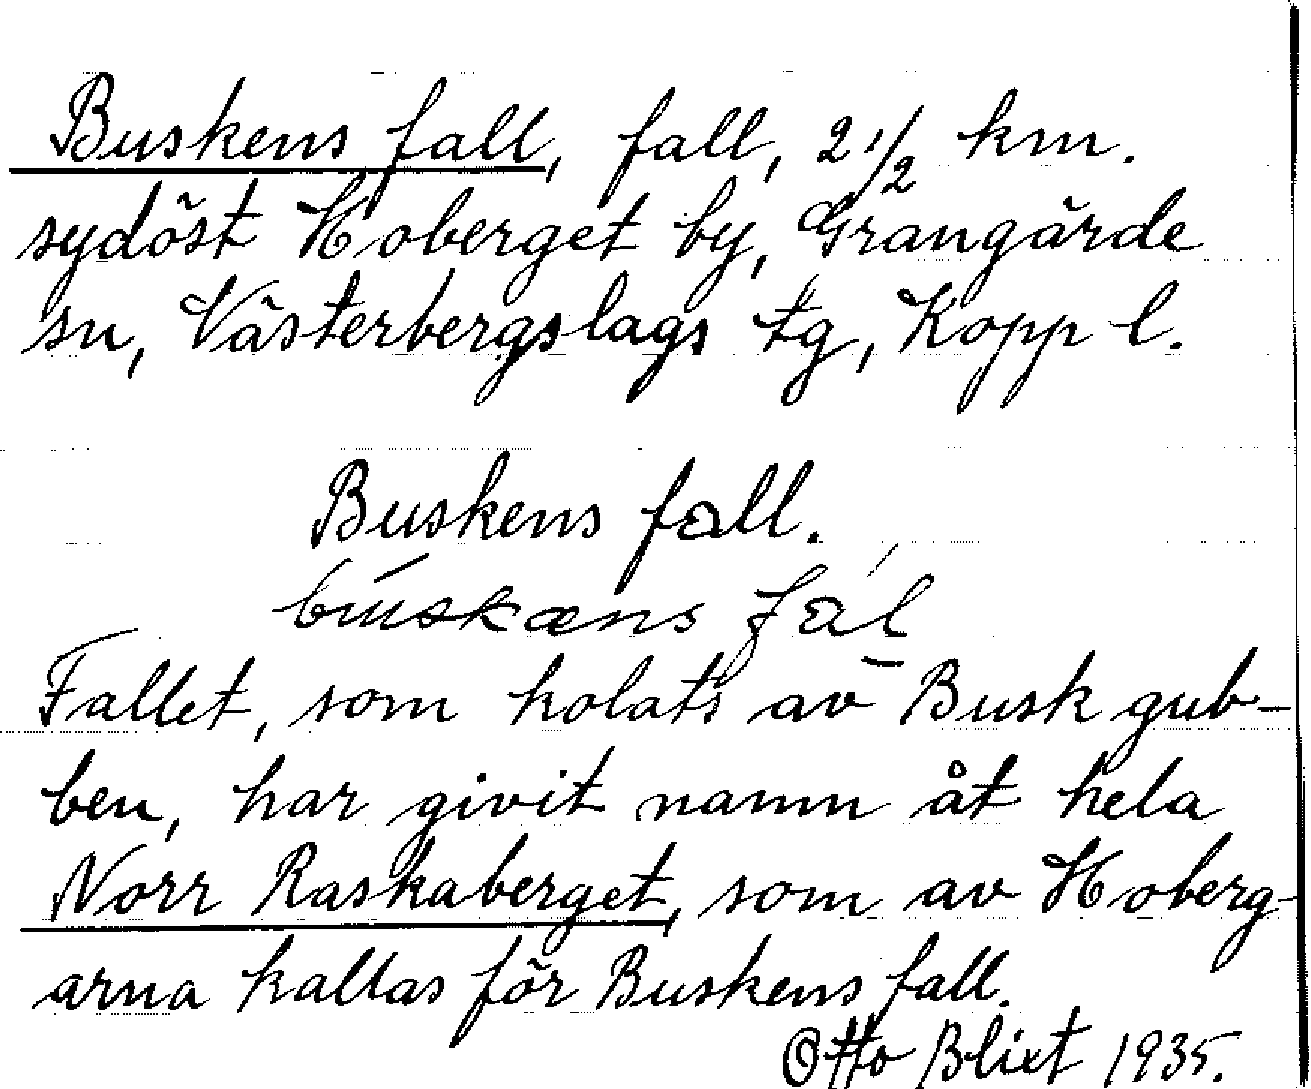 Buskens fall, fall, 2 1/2 km.
sydöst Hoberget by, Grangärde
sn, Västerbergslags tg, Kopp l.
Buskens fall.
fal
Fallet, som kolats av Busk gub-
ben, har givit namn åt hela
Norr Raskaberget, som av Hoberg-
arna kallas för Buskens fall.
Otto Blixt 1935.